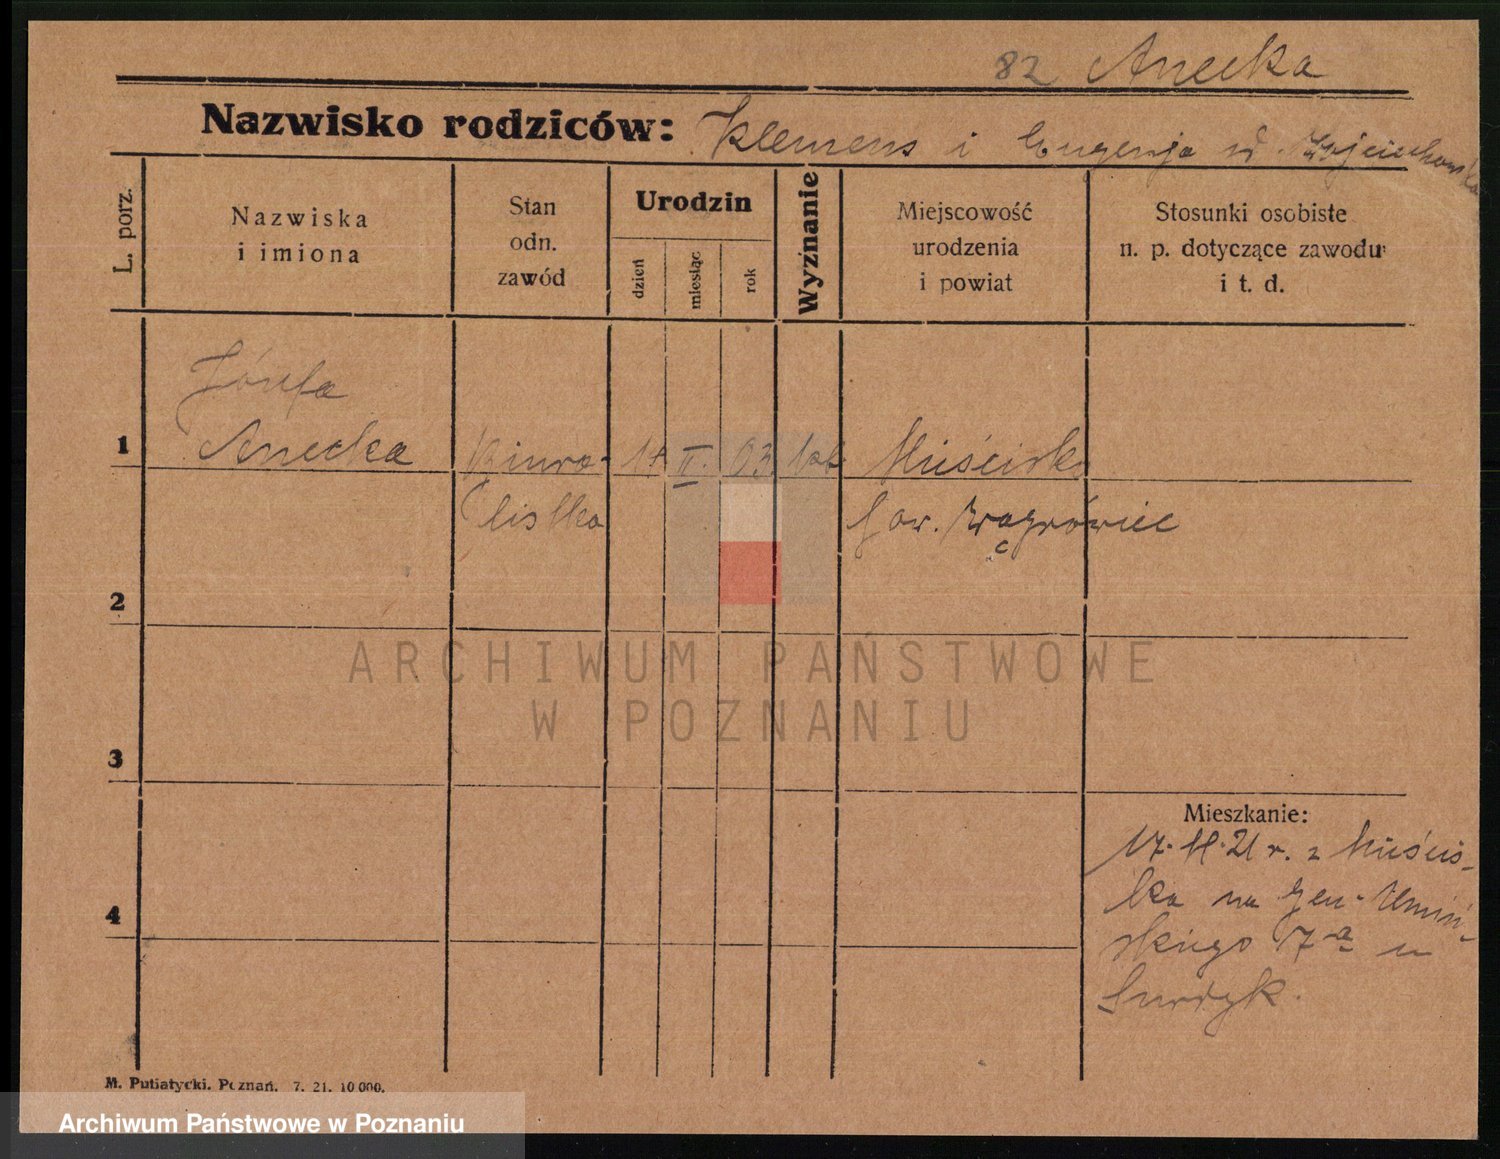 82 Anecka
Nazwisko rodziców: Klemens i Eugenja z d. Wojciechowska
L. porz.
Nazwiska
i imiona
Stan
odn.
zawód
Urodzin
dzień
miesiąc
rok
Wyznanie
Miejscowość
urodzenia
i powiat
Stosunki osobiste
n. p. dotyczące zawodu
i t. d.
Józefa
1 Anecka Biura- II. 03. kat Mieścisko
listka pow. Wągrówiec
2
3
4
Mieszkanie:
17. 21 r. z Mieścis-
ka na Gen. Umiń-
skiego 7a u
M. Putiatycki. Poznań. 7. 21. 10 000.
ARCHIWUM PAŃSTWOWE
W POZNANIU
Archiwum Państwowe w Poznaniu